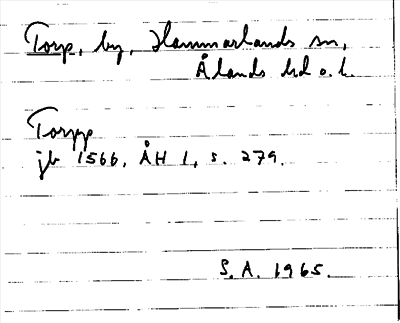 Torp, by, Hammarlands sn,
Ålands hd o. l.
Torpp
jb 1566, ÅH 1, s. 279.
S. A. 1965.